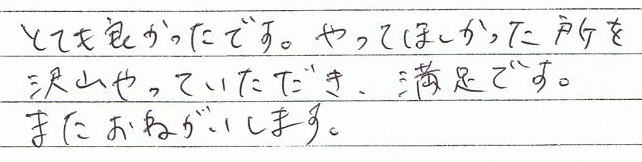 とても良かったです。やってほしかった所を
沢山やっていただき、満足です。
またおねがいします。